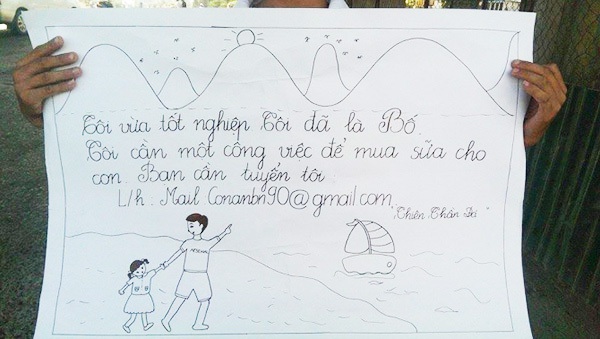 Tôi vừa tốt nghiệp Tôi đã là Bố.
Tôi cần một công việc để mua sữa cho
con. Bạn cần tuyển tôi
L/h. Mail Conanbn90@gmail.com
"Thiên Thần